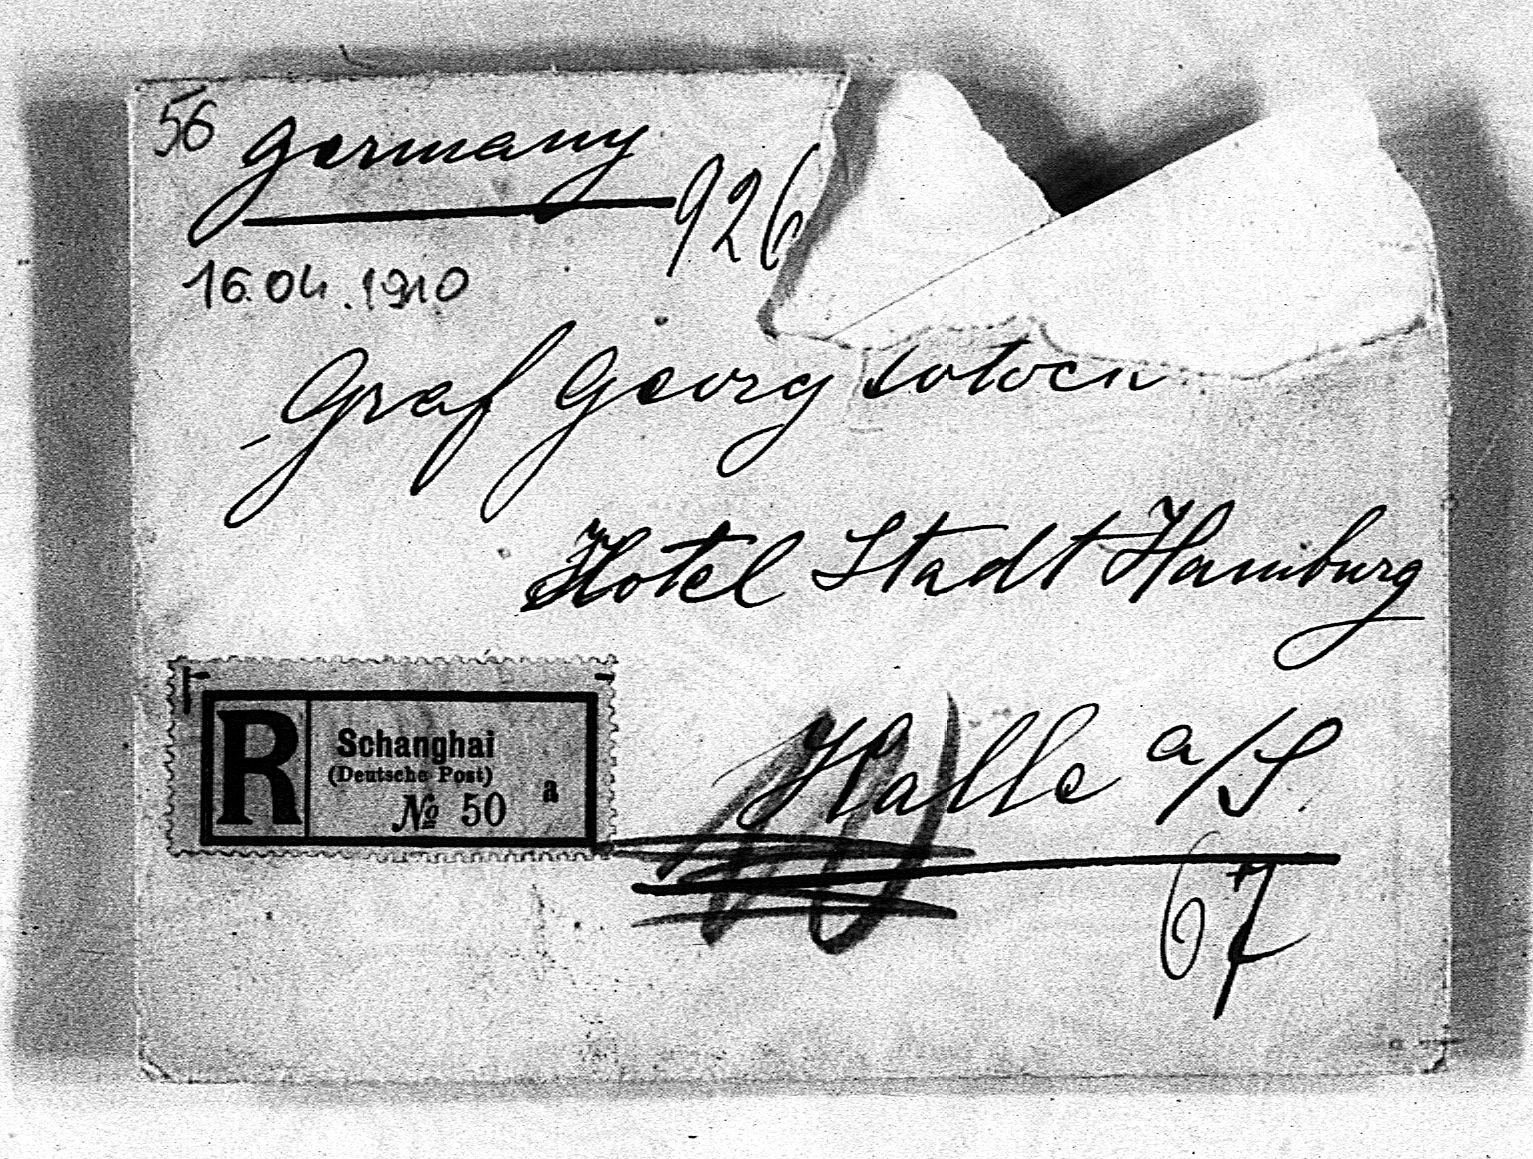 56 Germany
926
16.04.1910
Graf Georg
Hotel Stadt Hamburg
Halle a/S
67
R
Schanghai
(Deutsche Post)
№ 50 a